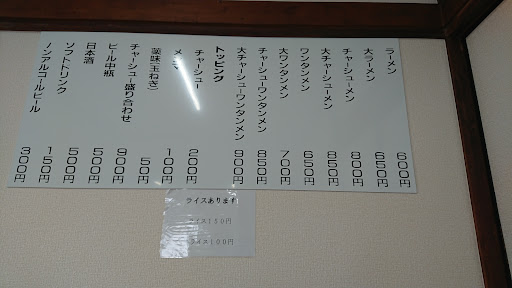 ラーメン 600円
大ラーメン 650円
チャーシューメン 800円
大チャーシューメン 850円
ワンタンメン 650円
大ワンタンメン 700円
チャーシューワンタンメン 850円
大チャーシューワンタンメン 900円
トッピング
チャーシュー 200円
メンマ 100円
薬味(玉ねぎ) 50円
チャーシュー盛り合わせ 900円
ビール中瓶 500円
日本酒 500円
ソフトドリンク 150円
ノンアルコールビール 300円
ライスあります
ライス150円
ライス100円